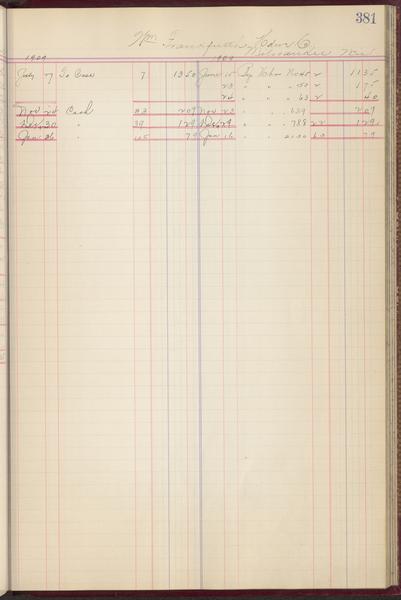 381
Wm Frankfurth Hdwr Co
Milwaukee Wis
1909 1909
July 7 To Cash 7 1350 June 15 By Mdse No 45 2 1135
23 " " " 50 2 175
24 " " " 63 2 40
Nov 24 Cash 23 209 Nov 23 " " " 639 209
Dec 30 " 39 129 Dec 29 " " " 788 22 129
Jan 26 " 45 79 Jan 16 " " 79